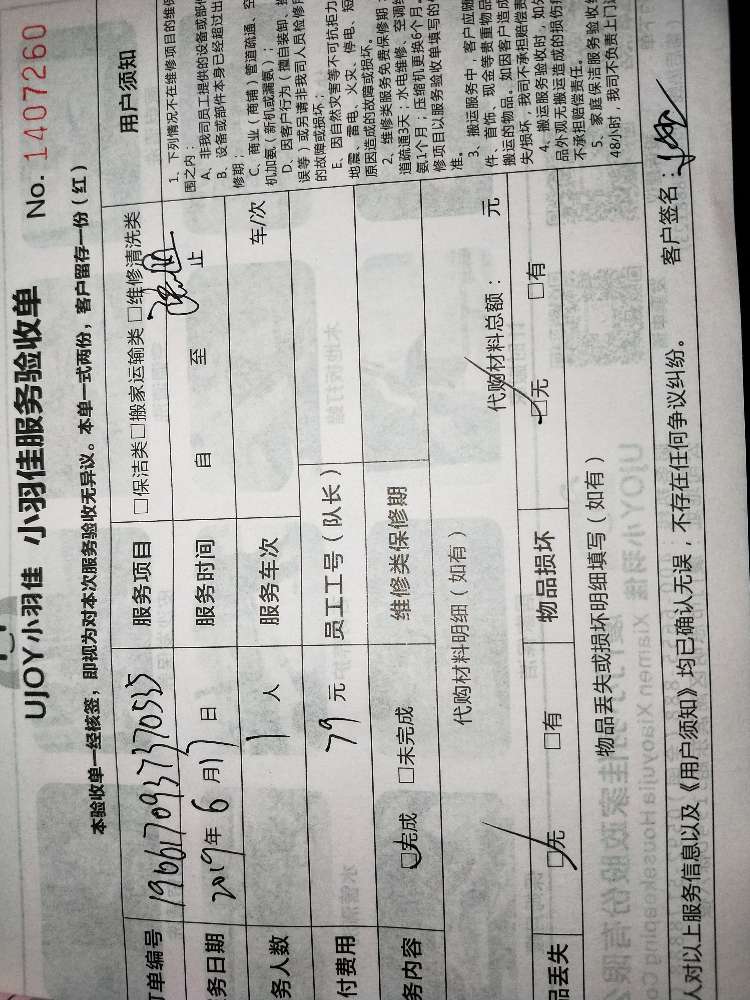 UJOY小羽佳 小羽佳服务验收单 No. 1407260
本验收单一经核签，即视为对本次服务验收无异议。本单一式两份，客户留存一份（红）
订单编号 1966170937370535 服务项目 □保洁类□搬家运输类 □维修清洗类
务日期 2019年 6 月17日 服务时间 自 至 止
务人数 1 人 服务车次 车/次
付费用 79 元 员工工号（队长）
务内容 □完成 □未完成 维修类保修期
代购材料明细（如有） 代购材料总额： 元
品丢失 □无 □有 物品损坏 □无 □有
物品丢失或损坏明细填写（如有）
用户须知
1、下列情况不在维修项目的维保
围之内：
A、非我司员工提供的设备或部件
B、设备或部件本身已经超过出
修期；
C、商业（商铺）管道疏通、空
机加氨（新机或漏氨）；
D、因客户行为（擅自装卸、操
误等）或另请非我司人员检修所
的故障或损坏；
E、因自然灾害等不可抗拒力
地震、雷电、火灾、停电、短
原因造成的故障或损坏。
2、维修类服务免费保修期：
道疏通3天；水电维修、空调维
氨1个月；压缩机更换6个月，
修项目以服务验收单填写的
准。
3、搬运服务中，客户应随
件、首饰、现金等贵重物品
搬运的物品。如因客户造成
失损坏，我司不承担赔偿责
4、搬运服务验收时，如外
品外观无搬运造成的损伤痕
不承担赔偿责任。
5、家庭保洁服务验收后
48小时，我司不负责上门返
人对以上服务信息以及《用户须知》均已确认无误，不存在任何争议纠纷。 客户签名：